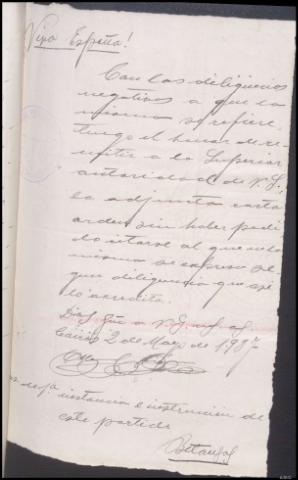 Viva España!
Con las diligencias
negativas a que la
misma se refiere
tengo el honor de re-
mitir a la Superior
autoridad de V.S.
la adjunta carta
orden sin haber podi-
do citarse al que en la
misma se expresa se-
gun diligencia que se
lo acredita.
Dios gue a V.S. m. a.
2 de Mayo de 1937
de 1ª instancia e instrucción de
este partido
Betanzos